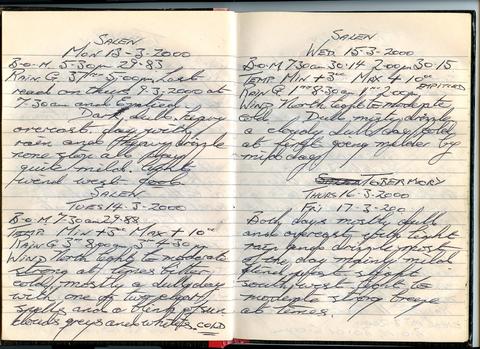 SALEN
MON 13-3-2000
B-O-M 5-30pm 29.83
RAIN G 37mm 5.00pm Last
read on thurs 9.3.2000 at
7.30am and emptied
Dark dull heavy
overcast day with
rain and heavy drizzle
none stop all day
quite mild light
wind west
SALEN
TUES 14-3-2000
B-O-M 7.30am 29.88
TEMP MIN +3°° MAX +10°°
RAIN G 3mm 8.00pm 3mm 4-30pm
WIND North light to moderate
strong at times bitter
cold mostly a dull day
with one or two bright
spells and a blink of sun
clouds greys and whites COLD
SALEN
WED 15-3-2000
B-O-M 7.30am 30.14 2.00pm 30.15
TEMP MIN +3°° MAX +10°°
RAIN G 1mm 8.30am 1mm 2.00pm EMPTIED
WIND North light to moderate
cold Dull misty drizzle
a cloudy dull day cold
at first going milder by
mid day
TOBERMORY
THURS 16-3-2000
FRI 17-3-200
Both days mostly dull
and overcast with light
rain and drizzle most
of the day mainly mild
wind west slight
south west light to
moderate strong breeze
at times.